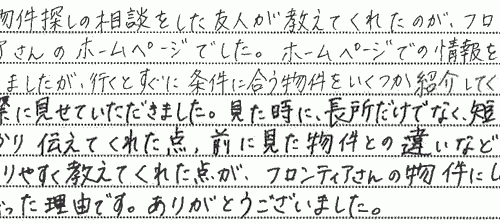 物件探しの相談をした友人が教えてくれたのが、フロ
アさんのホームページでした。ホームページでの情報を
しましたが、行くとすぐに条件に合う物件をいくつか紹介してく
際に見せていただきました。見た時に、長所だけでなく、短
かり伝えてくれた点、前に見た物件との違いなど
りやすく教えてくれた点が、フロンティアさんの物件にし
った理由です。ありがとうございました。